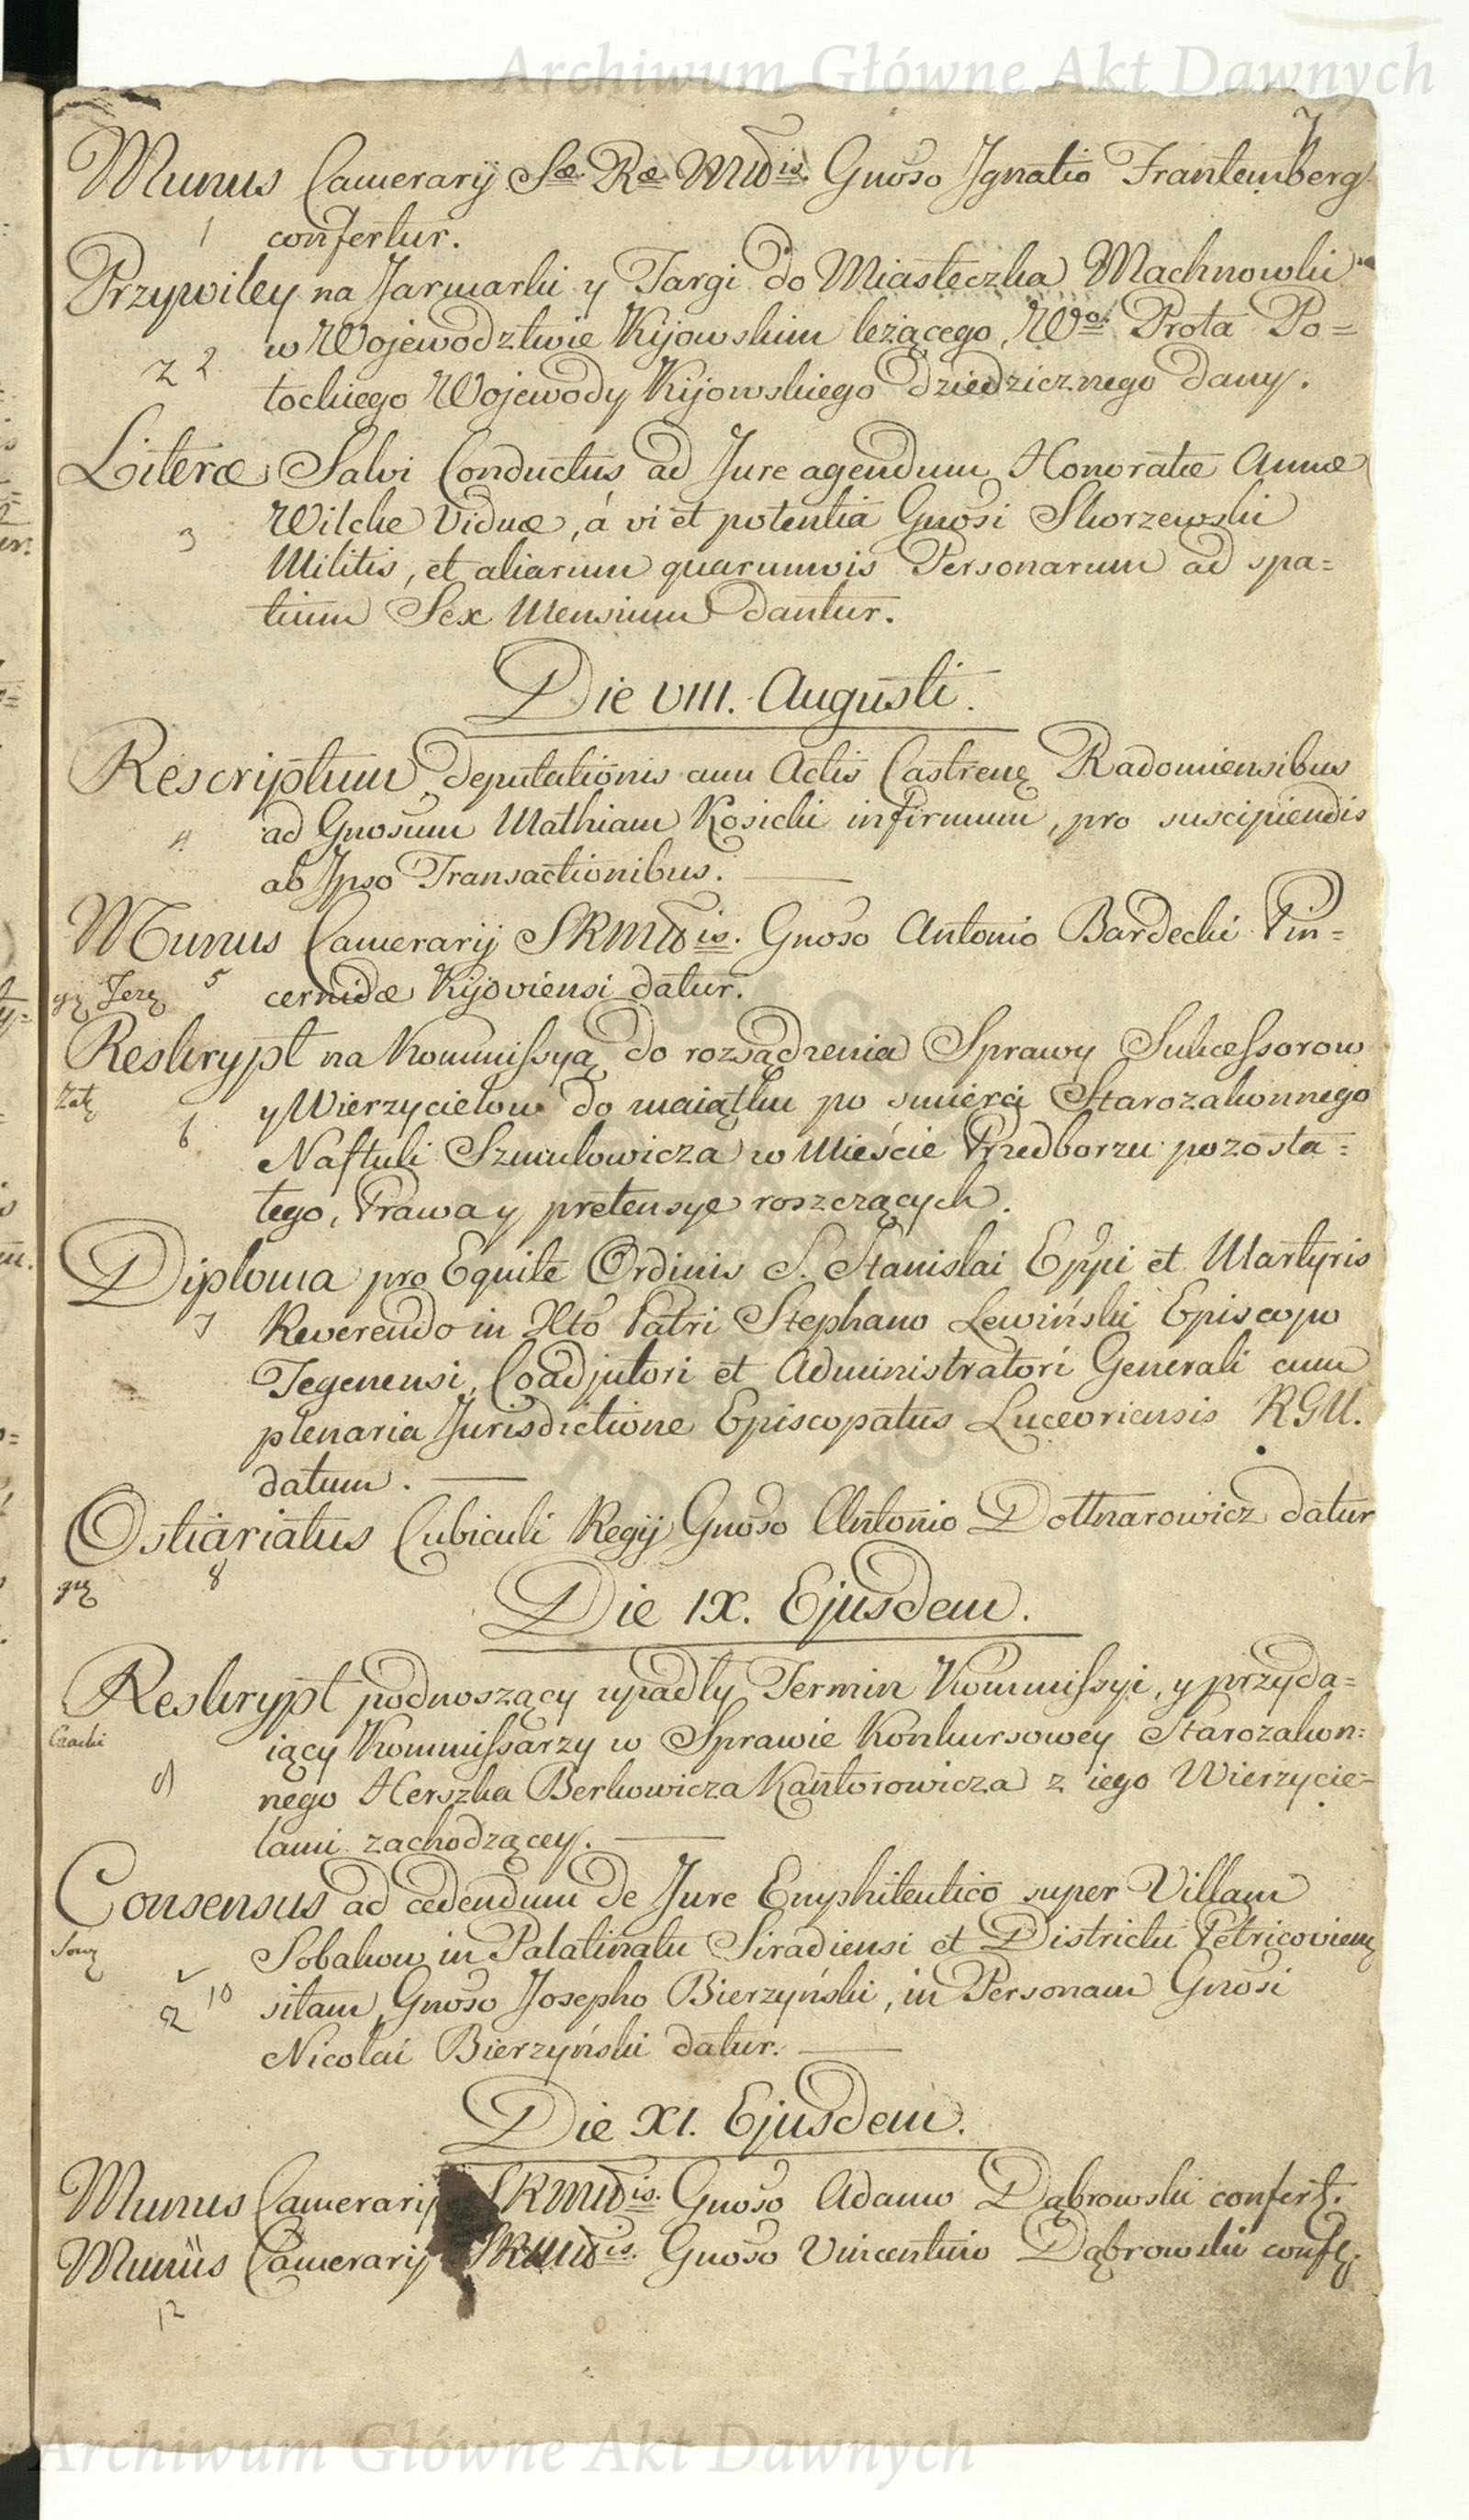 Archiwum Główne Akt Dawnych
7
Munus Camerarij Sæ Ræ Mttis. Gnoso Jgnatio Frantemberg
1 confertur.
Przywiley na Jarmarki y Targi do Miasteczka Machnowki
w Wojewodztwie Kijowskim leżącego, Wo. Prota Po=
2 2 tockiego Wojewody Kijowskiego dziedzicznego dany.
Literæ Salvi Conductus ad Jure agendum Honoratæ Annæ
3 Wilcke Viduæ, á vi et potentia Gnosi Skorzewski
Militis, et aliarum quarumvis Personarum ad spa=
tium Sex Mensium dantur.
Die VIII. Augusti.
Rescriptum deputationis cum Actis Castrenę Radomiensibus
4 ad Gnosum Mathiam Kosicki infirmum, pro suscipiendis
ab Jpso Transactionibus.
Munus Camerarij SRMttis. Gnoso Antonio Bardecki Pin=
5 cernidæ Kijoviensi datur.
Reskrypt na Kommissyą do rozsądzenia Sprawy Sukcessorow
6 y Wierzycielow do maiątku po smierci Starozakonnego
Naftuli Szmulowicza w Mieście Przedborzu pozosta=
łego, Prawa y pretensye roszczących.
Diploma pro Equite Ordinis S. Stanislai Eppi et Martyris
7 Reverendo in Xto Patri Stephano Lewiński Episcopo
Tegenensi, Coadjutori et Administratori Generali cum
plenaria Jurisdictione Episcopatus Luceoriensis RGU.
datum.
Ostiariatus Cubiculi Regij Gnoso Antonio Dottnarowicz datur
8
Die IX. Ejusdem.
Reskrypt podnoszący upadły Termin Kommissyi, y przyda=
Czacki iący Kommissarzy w Sprawie Konkursowey Starozakon=
9 nego Herszka Berkowicza Kantorowicza z iego Wierzycie=
lami zachodzącey.
Consensus ad cedendum de Jure Emphiteutico super Villam
Sobakow in Palatinatu Siradiensi et Districtu Petricovienę
2 10 sitam, Gnoso Josepho Bierzyński, in Personam Gnosi
Nicolai Bierzyński datur.
Die XI. Ejusdem.
Munus Camerarij SRMttis. Gnoso Adamo Dąbrowski confert.
Munus Camerarij SRMttis. Gnoso Vincentino Dąbrowski confę.
12
Archiwum Główne Akt Dawnych